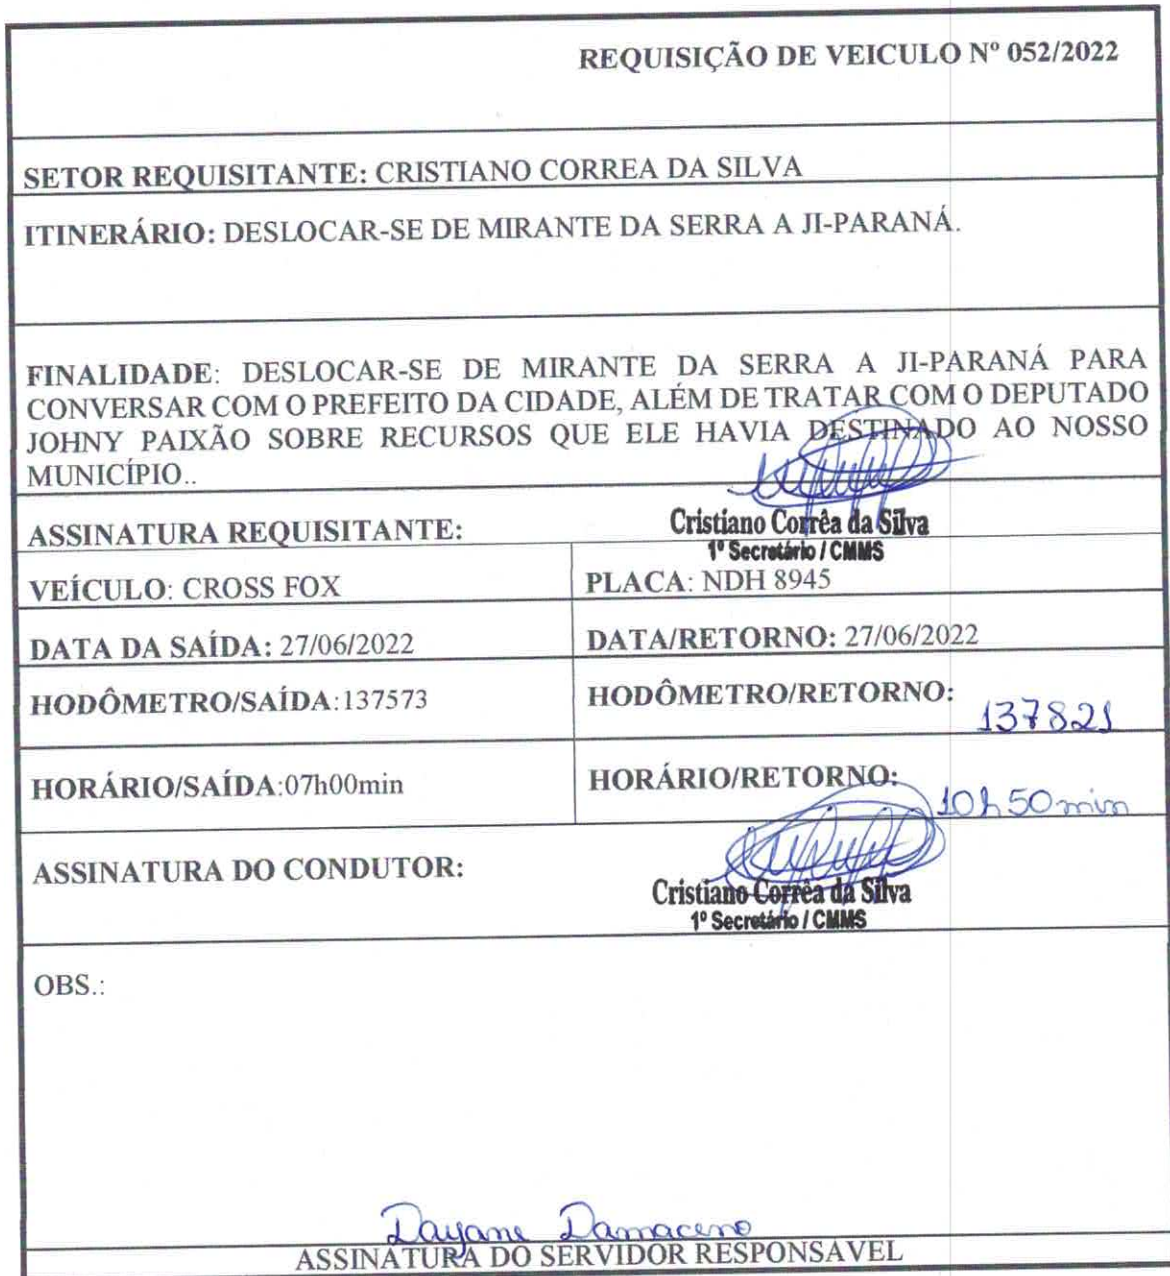 REQUISIÇÃO DE VEICULO Nº 052/2022
SETOR REQUISITANTE: CRISTIANO CORREA DA SILVA
ITINERÁRIO: DESLOCAR-SE DE MIRANTE DA SERRA A JI-PARANÁ.
FINALIDADE: DESLOCAR-SE DE MIRANTE DA SERRA A JI-PARANÁ PARA
CONVERSAR COM O PREFEITO DA CIDADE, ALÉM DE TRATAR COM O DEPUTADO
JOHNY PAIXÃO SOBRE RECURSOS QUE ELE HAVIA DESTINADO AO NOSSO
MUNICÍPIO..
ASSINATURA REQUISITANTE: Cristiano Corrêa da Silva
1º Secretário / CMMS
VEÍCULO: CROSS FOX PLACA: NDH 8945
DATA DA SAÍDA: 27/06/2022 DATA/RETORNO: 27/06/2022
HODÔMETRO/SAÍDA:137573 HODÔMETRO/RETORNO: 137821
HORÁRIO/SAÍDA:07h00min HORÁRIO/RETORNO: 10h50min
ASSINATURA DO CONDUTOR: Cristiano Corrêa da Silva
1º Secretário / CMMS
OBS.:
Dayane Damaceno
ASSINATURA DO SERVIDOR RESPONSAVEL